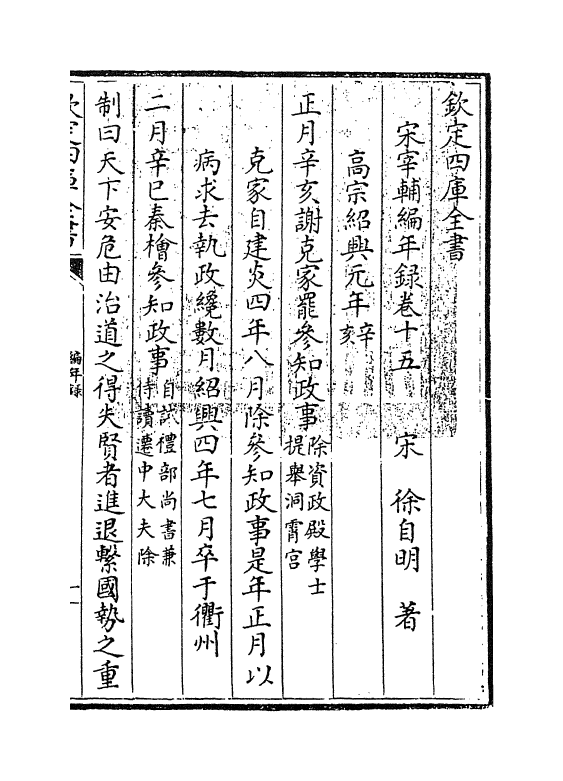 欽定四庫全書
宋宰輔編年録巻十五　宋　徐自明　著
高宗紹興元年辛亥
正月辛亥謝克家罷參知政事除資政殿學士提舉洞霄宮
克家自建炎四年八月除參知政事是年正月以
病求去執政纔數月紹興四年七月卒于衢州
二月辛巳秦檜參知政事自試禮部尚書兼侍讀遷中大夫除
制曰天下安危由治道之得失賢者進退繫國勢之重
編年録